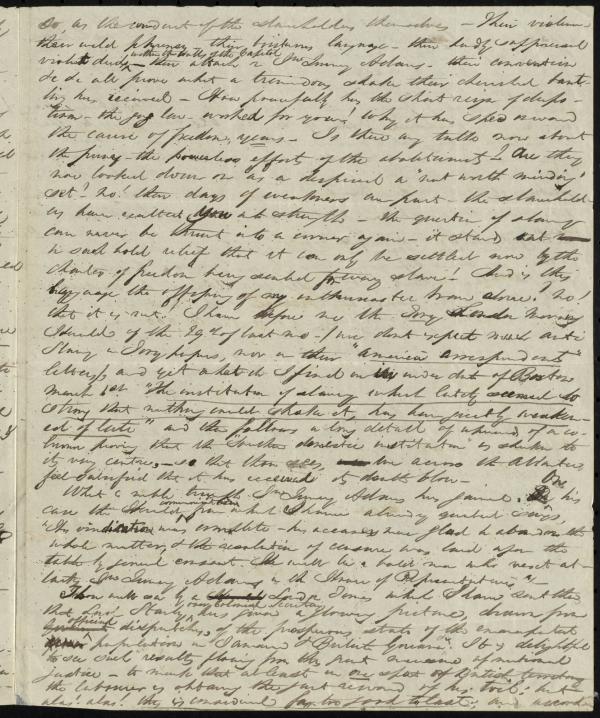 so, as the conduct of the slaveholders themselves – Their violence
their wild phrensy – their boisterous language – their deadly suppressed
within the walls of the Capitol
violent deeds – their attack on Jno Quincy Adams – their convention
&c &c all prove what a tremendous shake their cherished
has received – How powerfully has the short reign of
the gag law – worked for you! Why it has sped onward
the cause of freedom, years – Is there any talk now about
the puny – the powerless effort of the abolitionists! Are they
now looked down on as a despised a "not worth minding"
set! No! their days of weakness are past – the slaveholders
have exalted you at strengths – the question of slavery
can never be thrust into a corner again – it stands out
in such bold relief that it can only be settled now by the
charter of freedom being sealed for every slave! And is this
language the offspring of my enthusiastic brain alone! No!
that it is not. I have before me the Tory London Morning
Herald of the 29th of last mo – (we dont expect much anti
Slavery in Tory papers, nor in their "American correspondents"
letters) and yet what do I find in under date of Boston
March 1st "The institution of slavery which lately seemed so
strong that nothing could shake it, has been greatly weaken-
ed of late" and then follows a long detail of
proving that the "Southern domestic institution" is shaken to
its very centre, – so that thou sees, we across the Atlantic
feel satisfied that it has received its death blow –
What a noble triumph Jno Quincy Adams has gained. In his
case the Herald from which I have already quoted says
"His vindication was complete – his accusers were glad to abandon the
whole matter, & the resolution of censure was laid upon the
table by general consent. He will be a bold man who next at-
tacks Jno Quincy Adams in the House of Representatives" –
Thou will see by a London which I have sent thee
our Colonial Secretary
that Lord Stanley has given a glowing picture, drawn from
official dispatches, of the prosperous state of the emancipated
population in Jamaica & British Guiana. It is delightful
to see such results flowing from this great measure of national
justice – to mark that at least in one spot of British territory
the labourer is obtaining the just reward of his toil! but
alas! alas! this is considered far too good to last; and accord